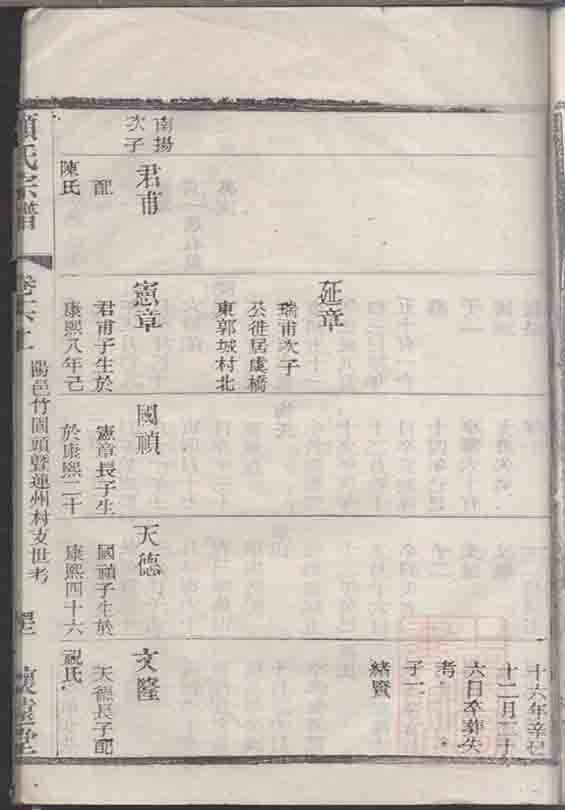 南揚
次子
君甫
配
陳氏
延章
瑞甫次子
公徙居虞橋
東郭城村北
憲章
君甫子生於
康熙八年己
國禎
憲章長子生
於康熙二十
天德
國禎子生於
康熙四十六
十六年辛巳
十二月二十
六日卒葬失
考
子一
緒賢
文隆
天德長子配
祝氏
氏宗譜
陽邑竹園頭暨蓮州村支世考